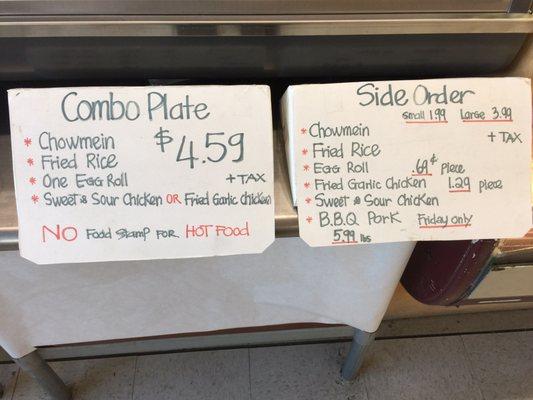 Combo Plate
* Chowmein
* Fried Rice
* One Egg Roll
* Sweet & Sour Chicken OR Fried Garlic chicken
$4.59
+TAX
NO Food Stamp FOR HOT FOOD
Side Order
Small 1.99 Large 3.99
+TAX
* Chowmein
* Fried Rice
* Egg Roll .69¢ Piece
* Fried Garlic Chicken 1.29 Piece
* Sweet & Sour Chicken
* B.B.Q Pork Friday only
5.99 lbs